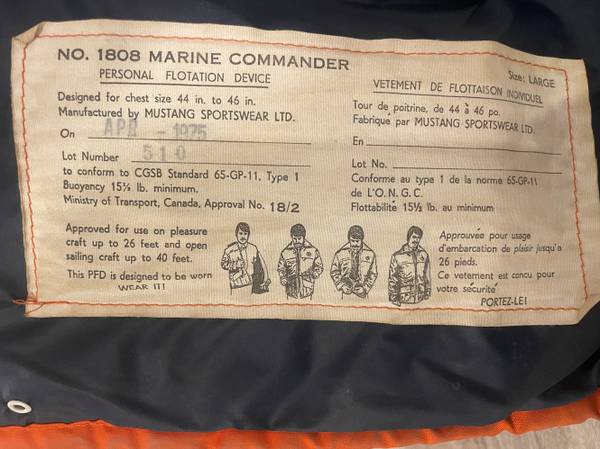 NO. 1808 MARINE COMMANDER
PERSONAL FLOTATION DEVICE
Designed for chest size 44 in. to 46 in.
Manufactured by MUSTANG SPORTSWEAR LTD.
On APR - 1975
Lot Number 510
to conform to CGSB Standard 65-GP-11, Type 1
Buoyancy 15½ lb. minimum.
Ministry of Transport, Canada, Approval No. 18/2
Approved for use on pleasure
craft up to 26 feet and open
sailing craft up to 40 feet.
This PFD is designed to be worn
WEAR IT!
Size: LARGE
VETEMENT DE FLOTTAISON INDIVIDUEL
Tour de poitrine, de 44 à 46 po.
Fabriqué par MUSTANG SPORTSWEAR LTD.
En
Lot No.
Conforme au type 1 de la norme 65-GP-11
de L'O.N.G.C.
Flottabilité 15½ lb. au minimum
Approuvée pour usage
d'embarcation de plaisir jusqu'a
26 pieds.
Ce vetement est concu pour
votre sécurité
PORTEZ-LE!